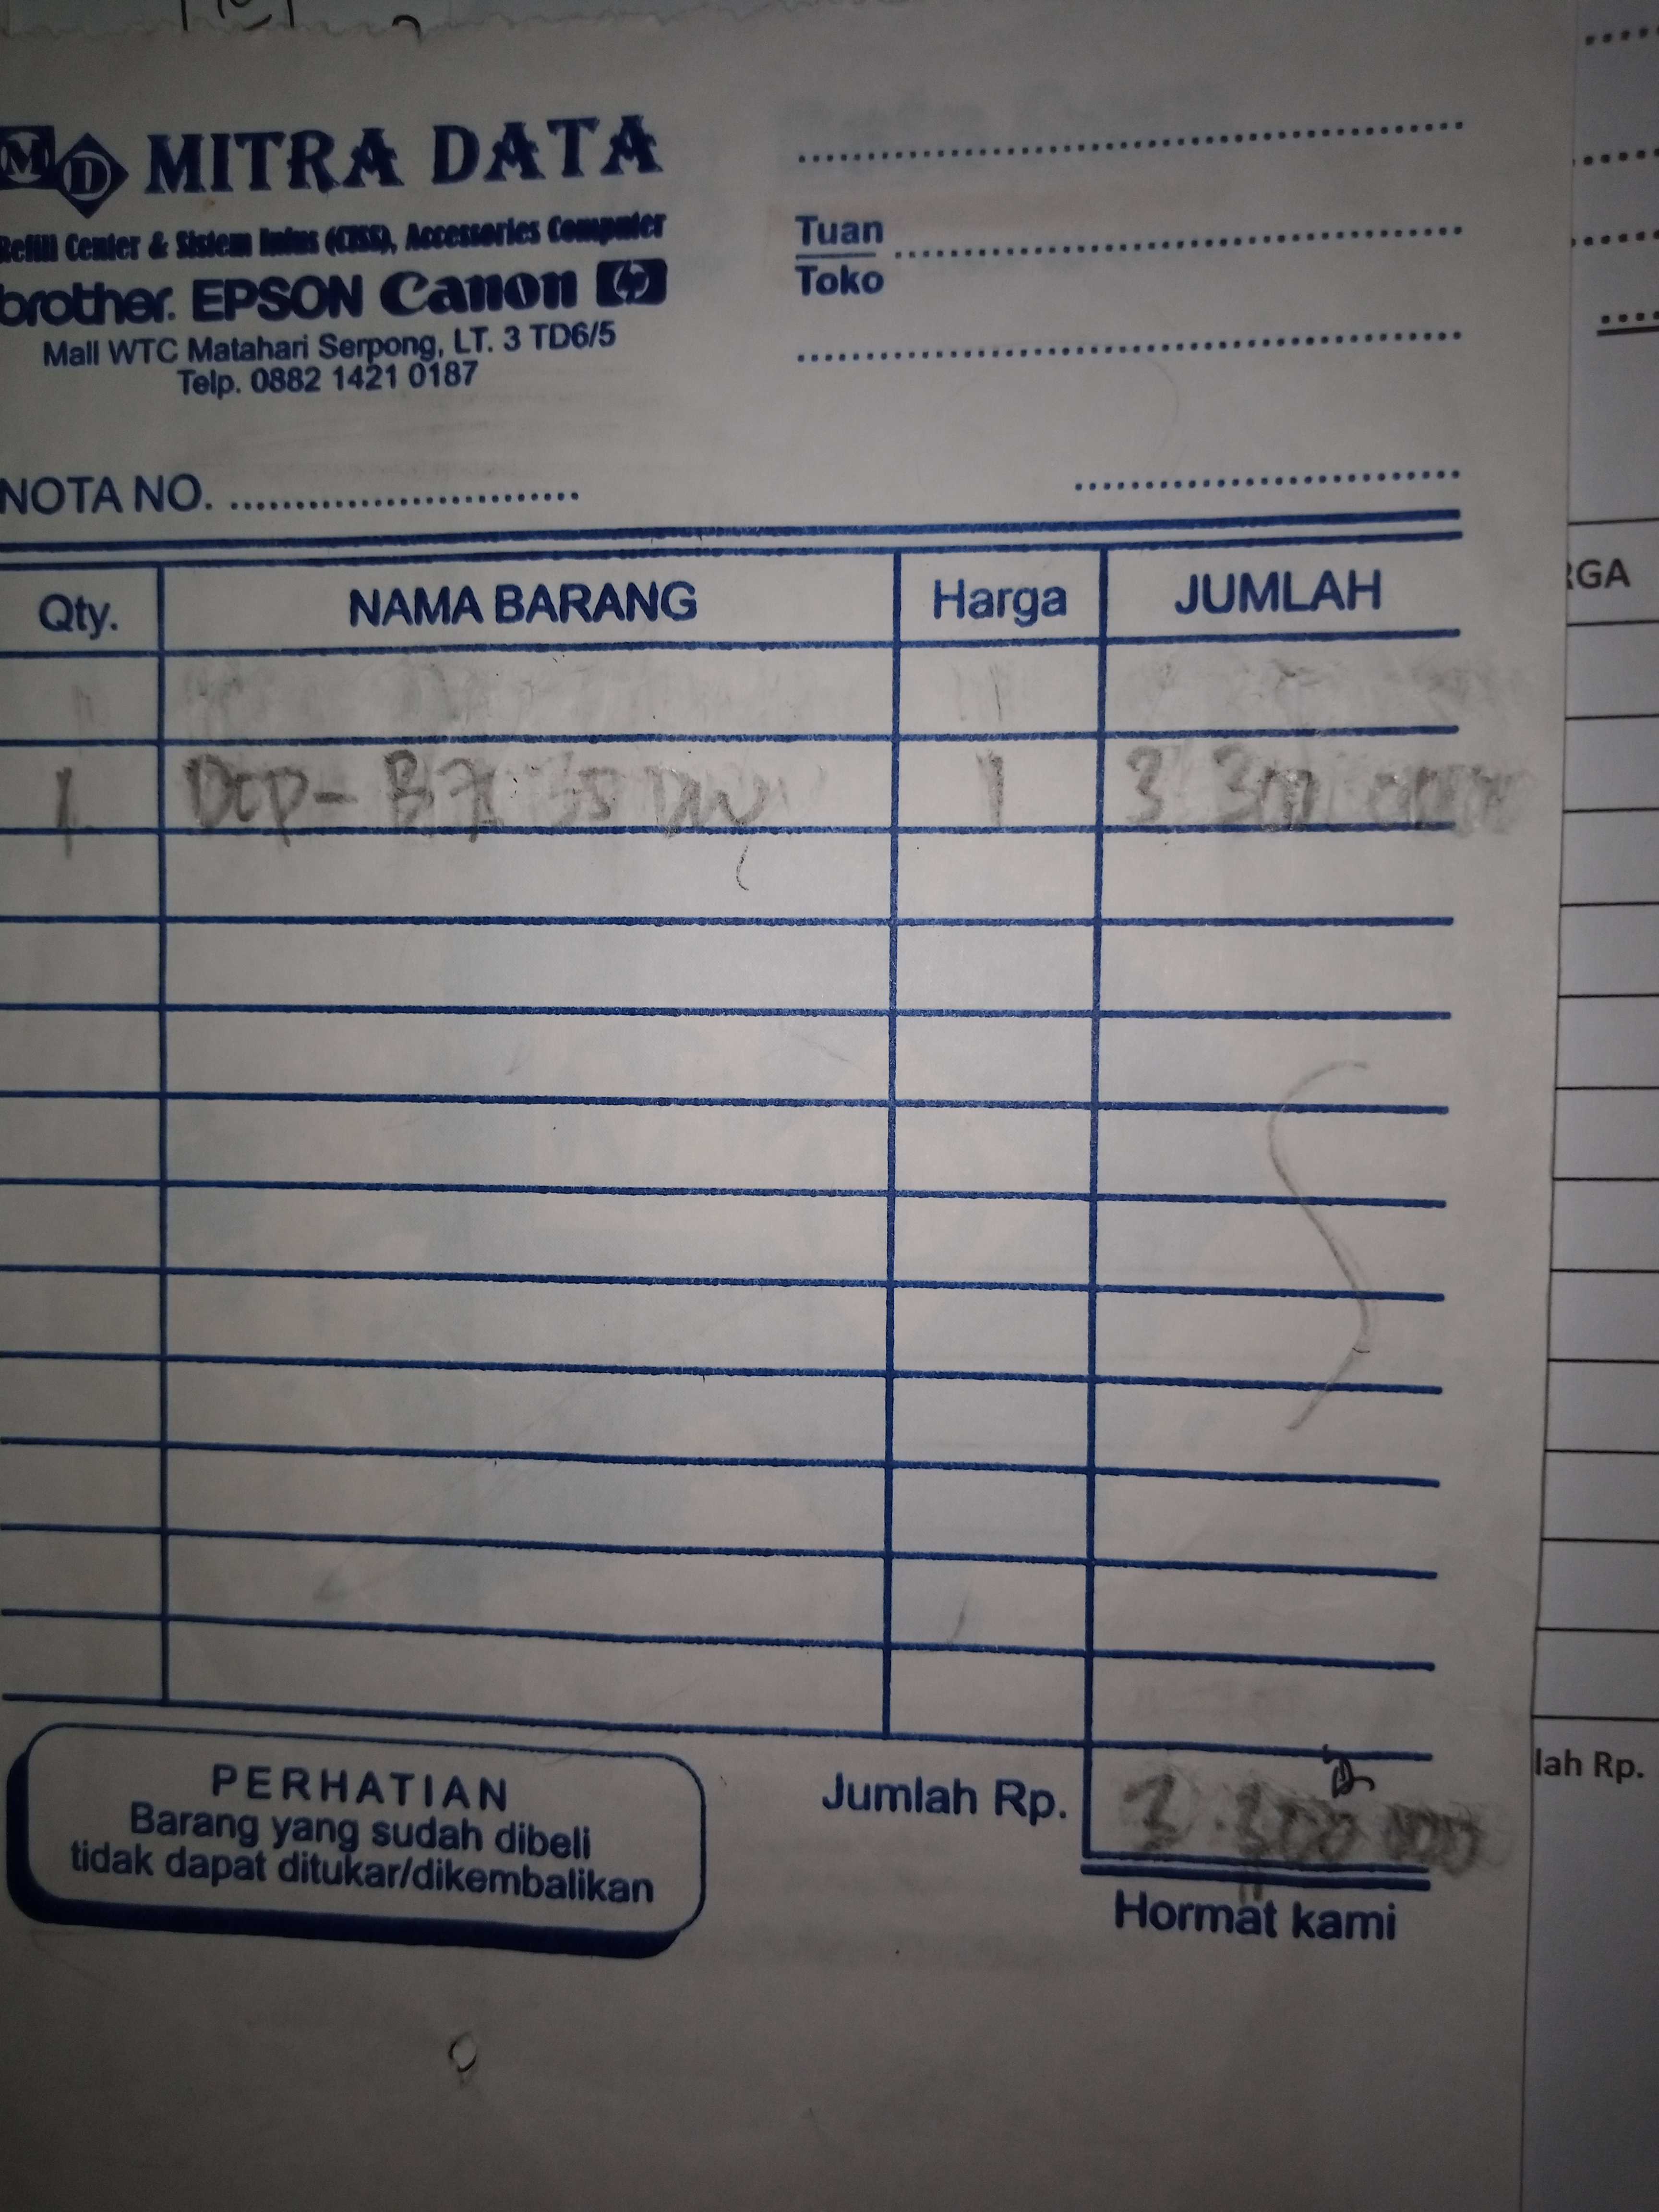 MD MITRA DATA
Refill Center & Sistem Infus (CISS), Accessories Computer
brother. EPSON Canon hp
Mall WTC Matahari Serpong, LT. 3 TD6/5
Telp. 0882 1421 0187
Tuan
Toko
NOTA NO.
Qty. NAMA BARANG Harga JUMLAH
1 DCP- 1 3 300 000
Jumlah Rp. 3.300 000
PERHATIAN
Barang yang sudah dibeli
tidak dapat ditukar/dikembalikan
Hormat kami
RGA
lah Rp.